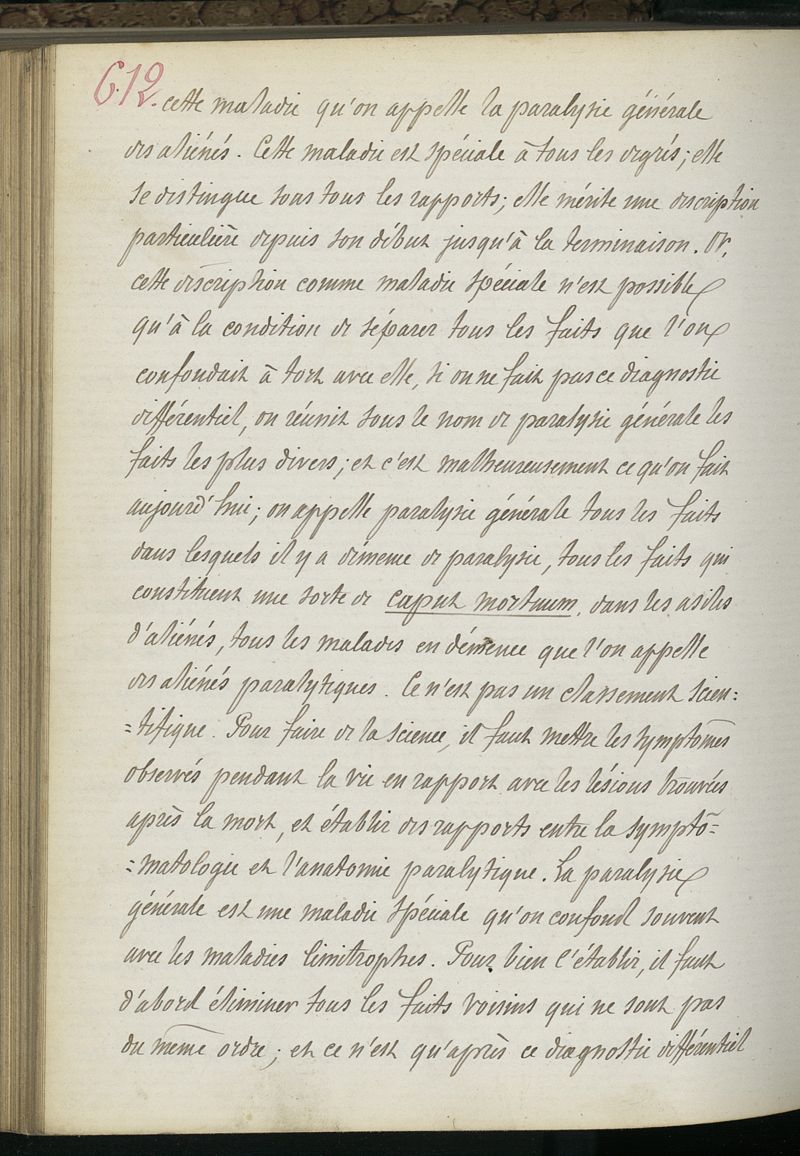 612.
cette maladie qu'on appelle la paralysie générale
des aliénés. Cette maladie est spéciale à tous les degrés; elle
se distingue sous tous les rapports; elle mérite une description
particulière depuis son début jusqu'à la terminaison. Or,
cette description comme maladie spéciale n'est possible
qu'à la condition de séparer tous les faits que l'on
confondait à tort avec elle, si on ne fait pas ce diagnostic
différentiel, on réunit sous le nom de paralysie générale les
faits les plus divers; et c'est malheureusement ce qu'on fait
aujourd'hui; on appelle paralysie générale tous les faits
dans lesquels il y a démence de paralysie, tous les faits qui
constituent une sorte de caput mortuum, dans les asiles
d'aliénés, tous les malades en démence que l'on appelle
des aliénés paralytiques. Ce n'est pas un classement scien=
=tifique. Pour faire de la science, il faut mettre les symptômes
observés pendant la vie en rapport avec les lésions trouvées
après la mort, et établir des rapports entre la symptô=
=matologie et l'anatomie paralytique. La paralysie
générale est une maladie spéciale qu'on confond souvent
avec les maladies limitrophes. Pour bien l'établir, il faut
d'abord éliminer tous les faits voisins qui ne sont pas
du même ordre; et ce n'est qu'après ce diagnostic différentiel